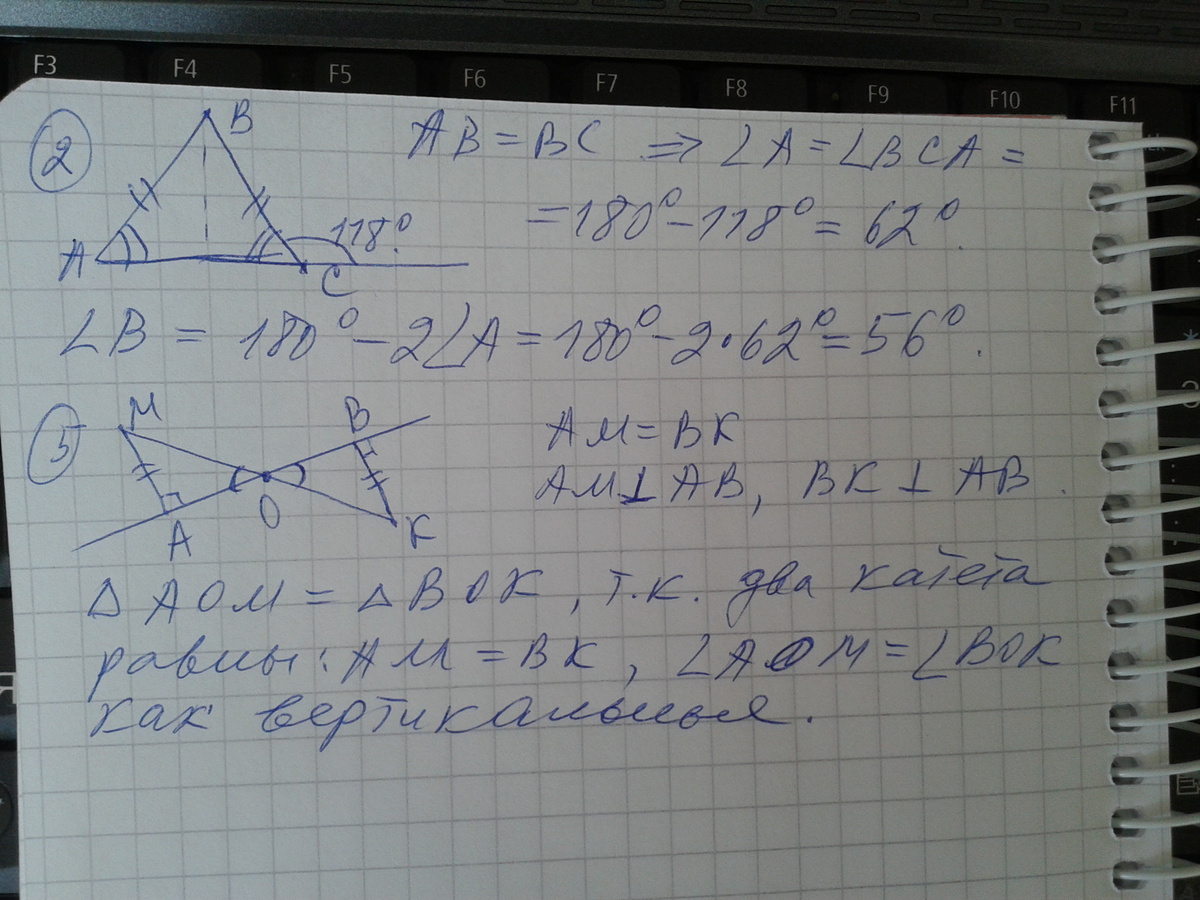 F3 F4 F5 F6 F7 F8 F9 F10 F11
2
B
A
C
118°
AB = BC ⇒ ∠A = ∠BCA =
= 180° - 118° = 62°.
∠B = 180° - 2∠A = 180° - 2·62° = 56°.
5
M
B
A
O
K
AM = BK
AM ⊥ AB, BK ⊥ AB.
△AOM = △BOK, т.к. два катета
равны: AM = BK, ∠AOM = ∠BOK
как вертикальные.